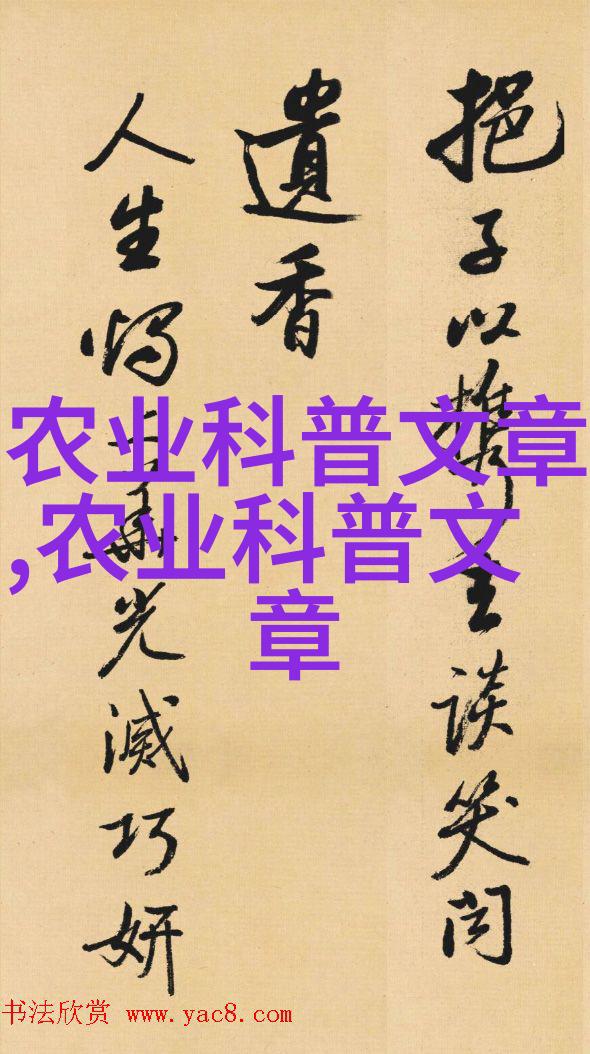 挹子以主談笑
遺香
人生光滅巧妍
农业科普文章
,农业科普文
章
书法欣赏 www.yac8.com